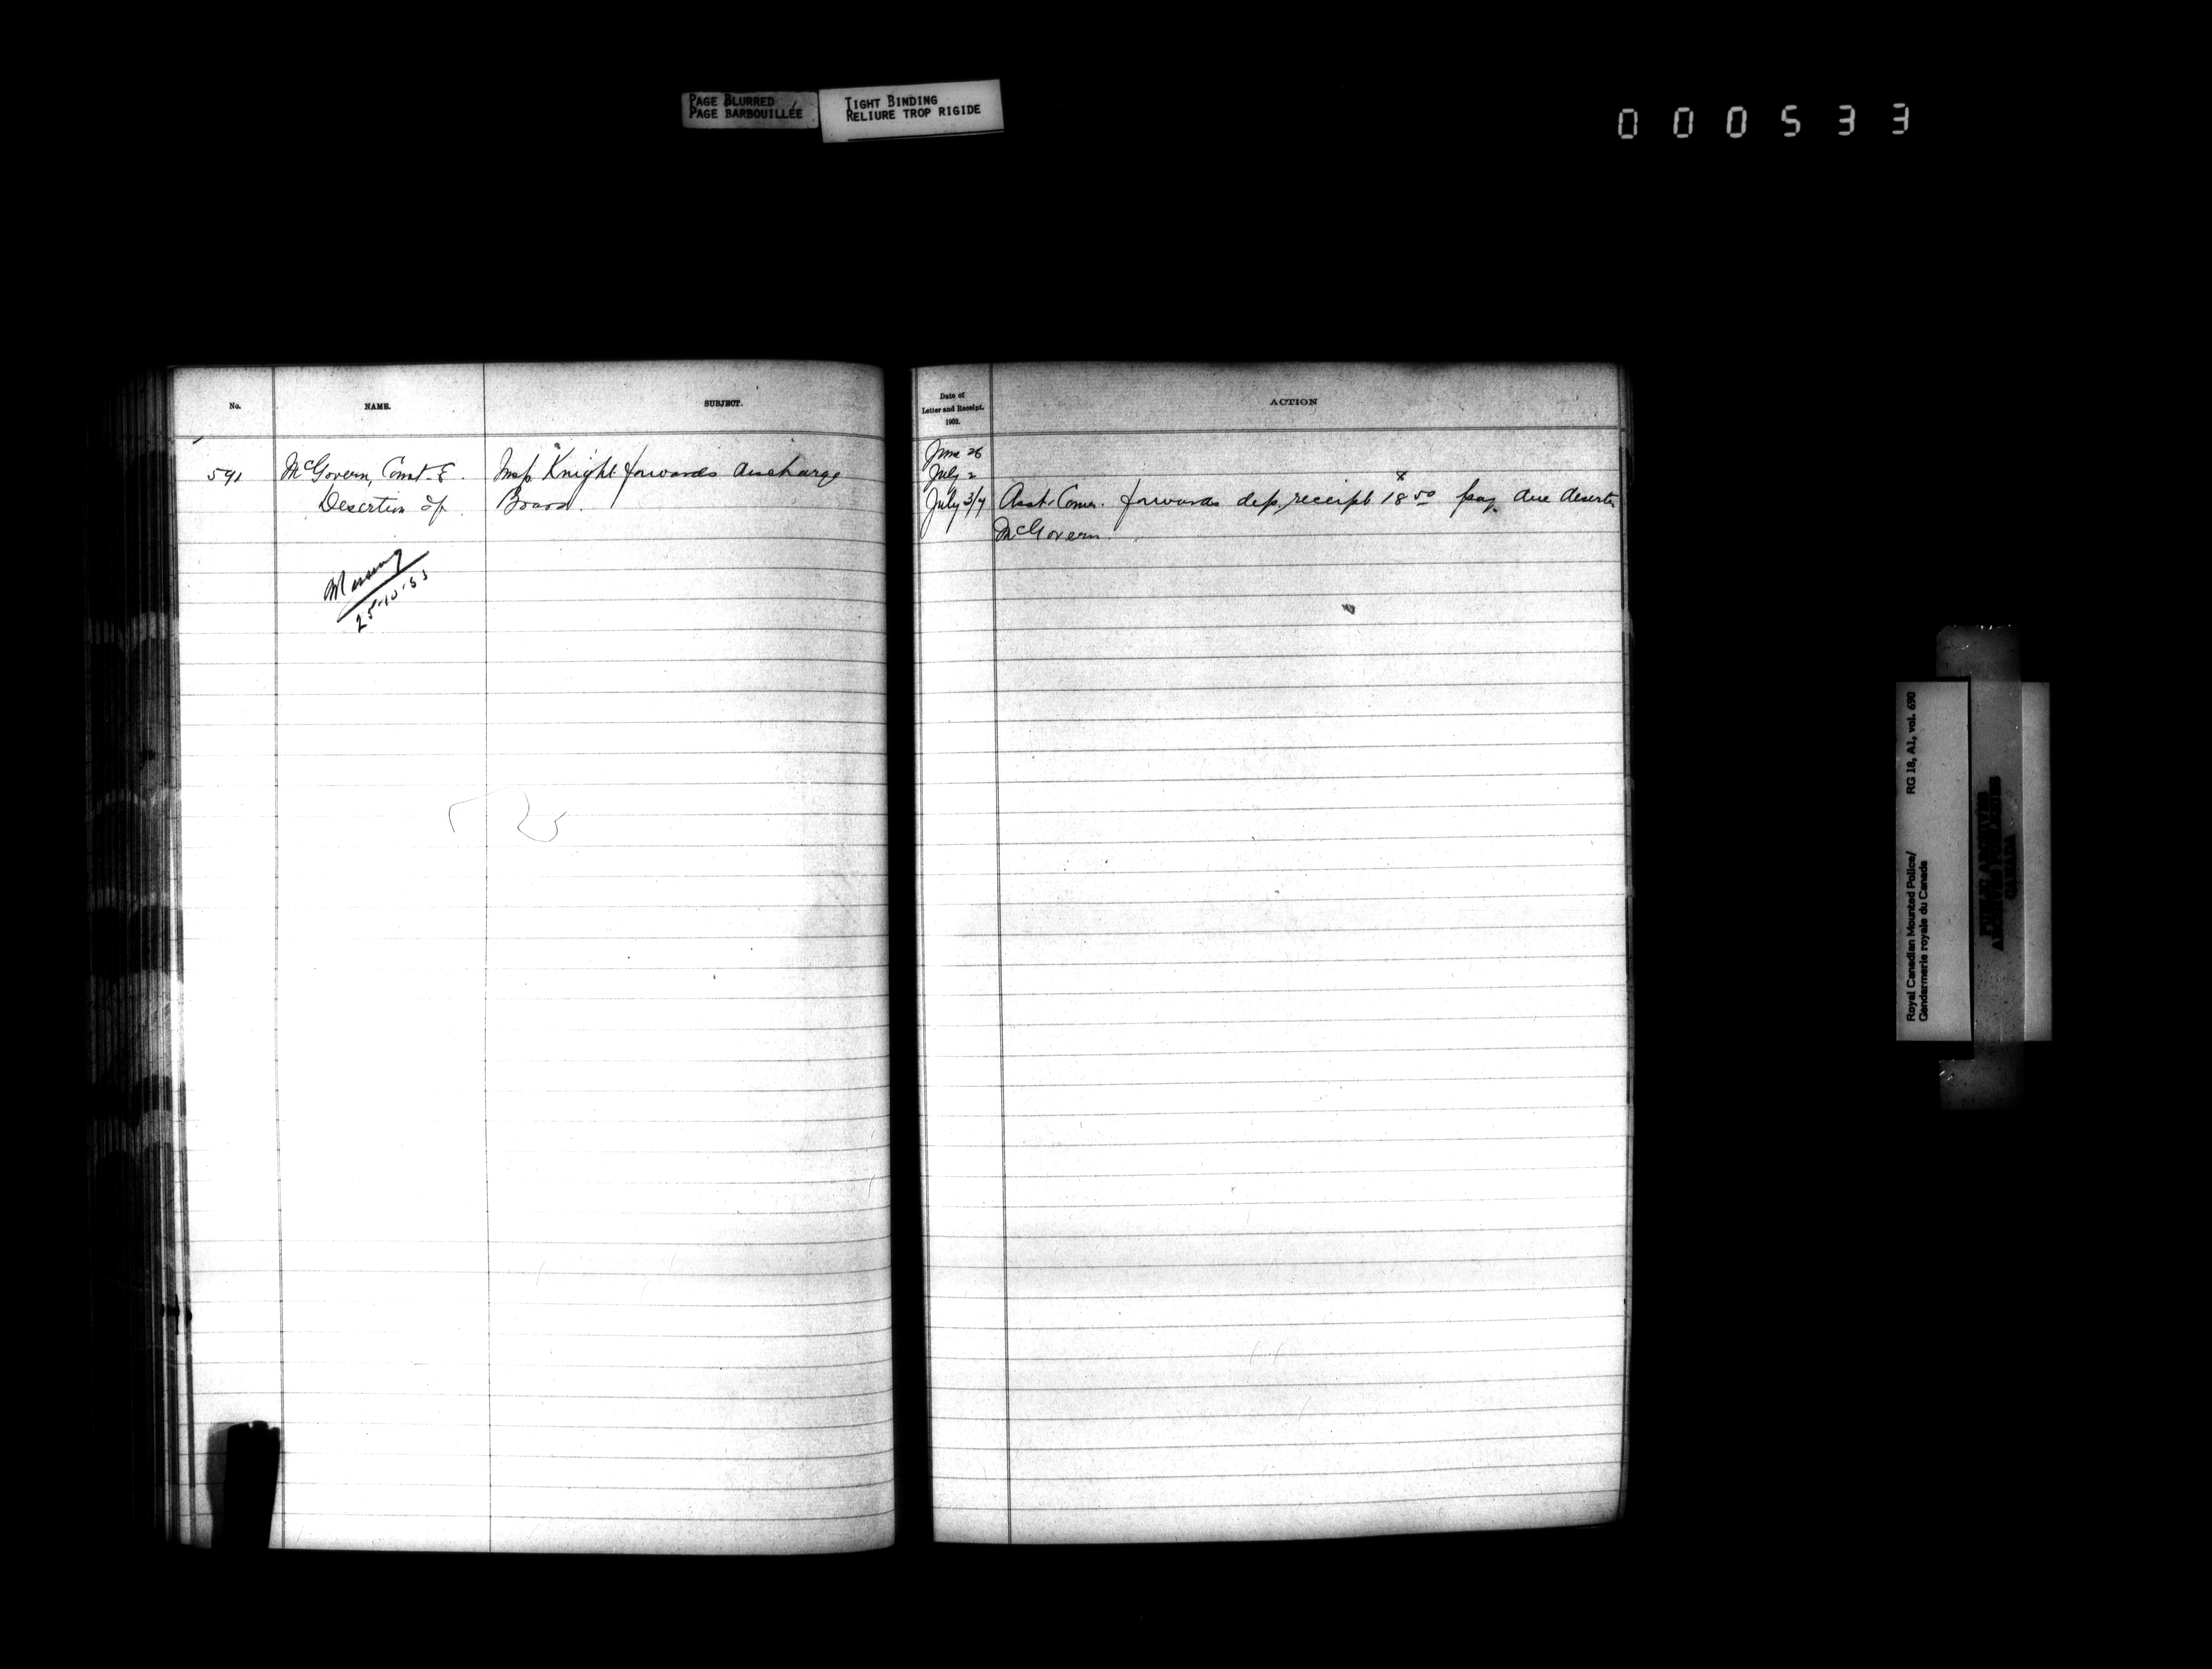 PAGE BLURRED
PAGE BARBOUILLÉE
TIGHT BINDING
RELIURE TROP RIGIDE
000533
No.
NAME.
SUBJECT.
Date of
Letter and Receipt.
1903.
ACTION
591
McGovern, Const. E.
Desertion of
Insp Knight forwards discharge
Board.
Missing
25-10-53
June 26
July 2
July 3/7
Asst. Comr. forwards dep. receipt 18 50 pay due deserter
McGovern.
RG 18, A1, vol. 690
Royal Canadian Mounted Police/
Gendarmerie royale du Canada
PUBLIC ARCHIVES
ARCHIVES PUBLIQUES
CANADA